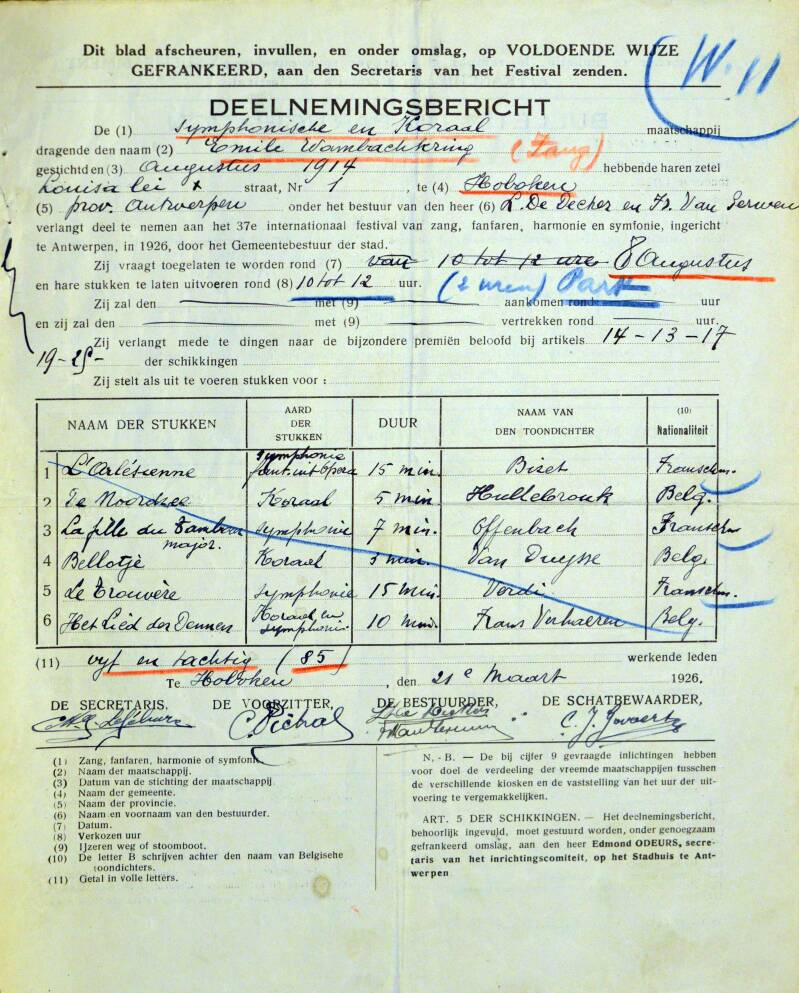 Dit blad afscheuren, invullen, en onder omslag, op VOLDOENDE WIJZE
GEFRANKEERD, aan den Secretaris van het Festival zenden.
W. 11
DEELNEMINGSBERICHT
De (1) Symphonische en Koraal maatschappij
dragende den naam (2) Emile Wambachkring (Zang)
gesticht den (3) Augustus 1914 hebbende haren zetel
Louisa lei straat, Nr 1, te (4) Hoboken
(5) prov. Antwerpen onder het bestuur van den heer (6) L. De Vecher en Fr. Van Serwen
verlangt deel te nemen aan het 37e internationaal festival van zang, fanfaren, harmonie en symfonie, ingericht
te Antwerpen, in 1926, door het Gemeentebestuur der stad.
Zij vraagt toegelaten te worden rond (7) van 10 tot 12 ure 8 Augustus
en hare stukken te laten uitvoeren rond (8) 10 tot 12 uur. (2 uren) Park
Zij zal den met (9) aankomen rond uur
en zij zal den met (9) vertrekken rond uur.
Zij verlangt mede te dingen naar de bijzondere premiën beloofd bij artikels 14-13-17
19-25- der schikkingen
Zij stelt als uit te voeren stukken voor :
NAAM DER STUKKEN AARD DER STUKKEN DUUR NAAM VAN DEN TOONDICHTER (10) Nationaliteit
1 L'Arlésienne symphonie fant. uit opera 15 min. Bizet Franschm.
2 De Noordzee Koraal 5 min. Hullebrouk Belg.
3 La fille du Tambour major. symphonie 7 min. Offenbach Franschm
4 Bellotje Koraal 5 min. Van Duysse Belg.
5 Le Trouvère symphonie 15 min. Verdi Franschm.
6 Het Lied der Dennen Koraal en symphonie. 10 min. Frans Verhaeren Belg.
(11) vyf en tachtig (85) werkende leden
Te Hoboken, den 21e Maart 1926,
DE SECRETARIS. DE VOORZITTER, DE BESTUURDER, DE SCHATBEWAARDER,
C. Pichal C. J. Govaerts
(1) Zang, fanfaren, harmonie of symfonie
(2) Naam der maatschappij.
(3) Datum van de stichting der maatschappij.
(4) Naam der gemeente.
(5) Naam der provincie.
(6) Naam en voornaam van den bestuurder.
(7) Datum.
(8) Verkozen uur
(9) IJzeren weg of stoomboot.
(10) De letter B schrijven achter den naam van Belgische
toondichters.
(11) Getal in volle letters.
N. - B. — De bij cijfer 9 gevraagde inlichtingen hebben
voor doel de verdeeling der vreemde maatschappijen tusschen
de verschillende kiosken en de vaststelling van het uur der uit-
voering te vergemakkelijken.
ART. 5 DER SCHIKKINGEN. — Het deelnemingsbericht,
behoorlijk ingevuld, moet gestuurd worden, onder genoegzaam
gefrankeerd omslag, aan den heer Edmond ODEURS, secre-
taris van het inrichtingscomiteit, op het Stadhuis te Ant-
werpen